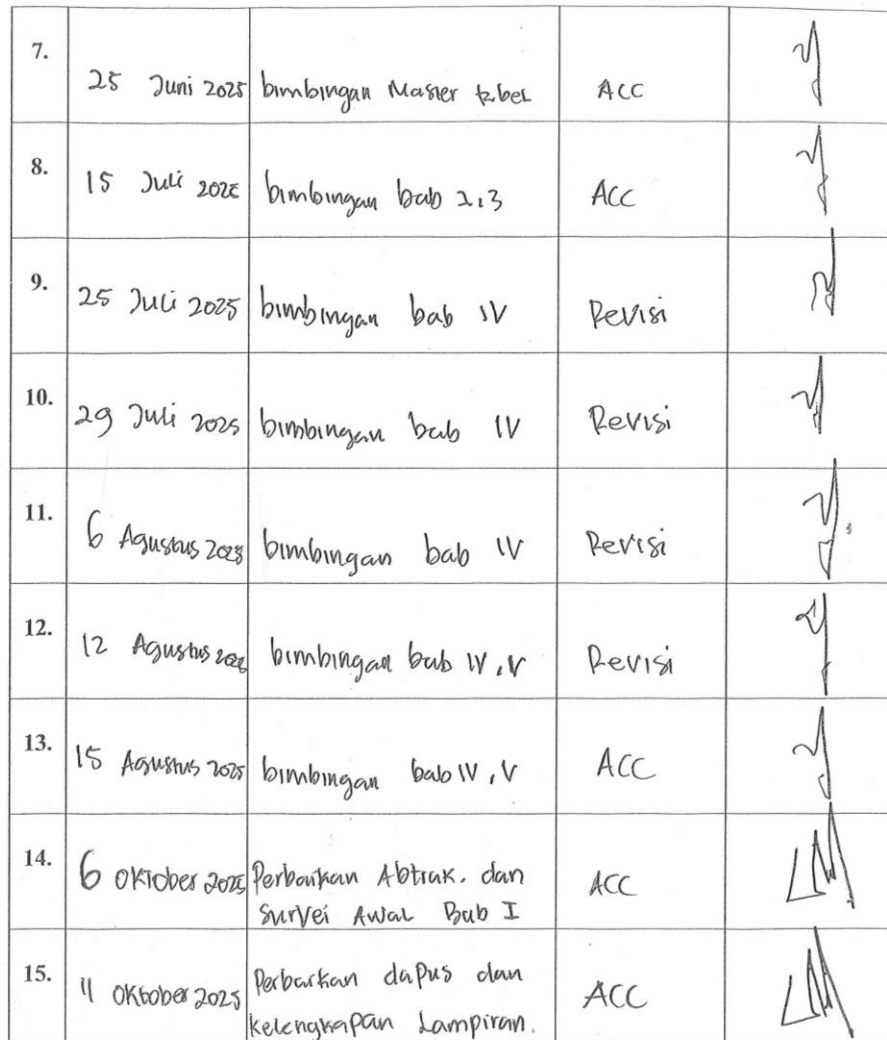 7.
25 Juni 2025 bimbingan Master tabel ACC
8.
15 Juli 2025 bimbingan bab 2,3 ACC
9.
25 Juli 2025 bimbingan bab IV Revisi
10.
29 Juli 2025 bimbingan bab IV Revisi
11.
6 Agustus 2025 bimbingan bab IV Revisi
12.
12 Agustus 2025 bimbingan bab IV, V Revisi
13.
15 Agustus 2025 bimbingan bab IV, V ACC
14.
6 Oktober 2025 Perbaikan Abtrak. dan ACC
Survei Awal Bab I
15.
11 Oktober 2025 Perbaikan dapus dan ACC
kelengkapan Lampiran.